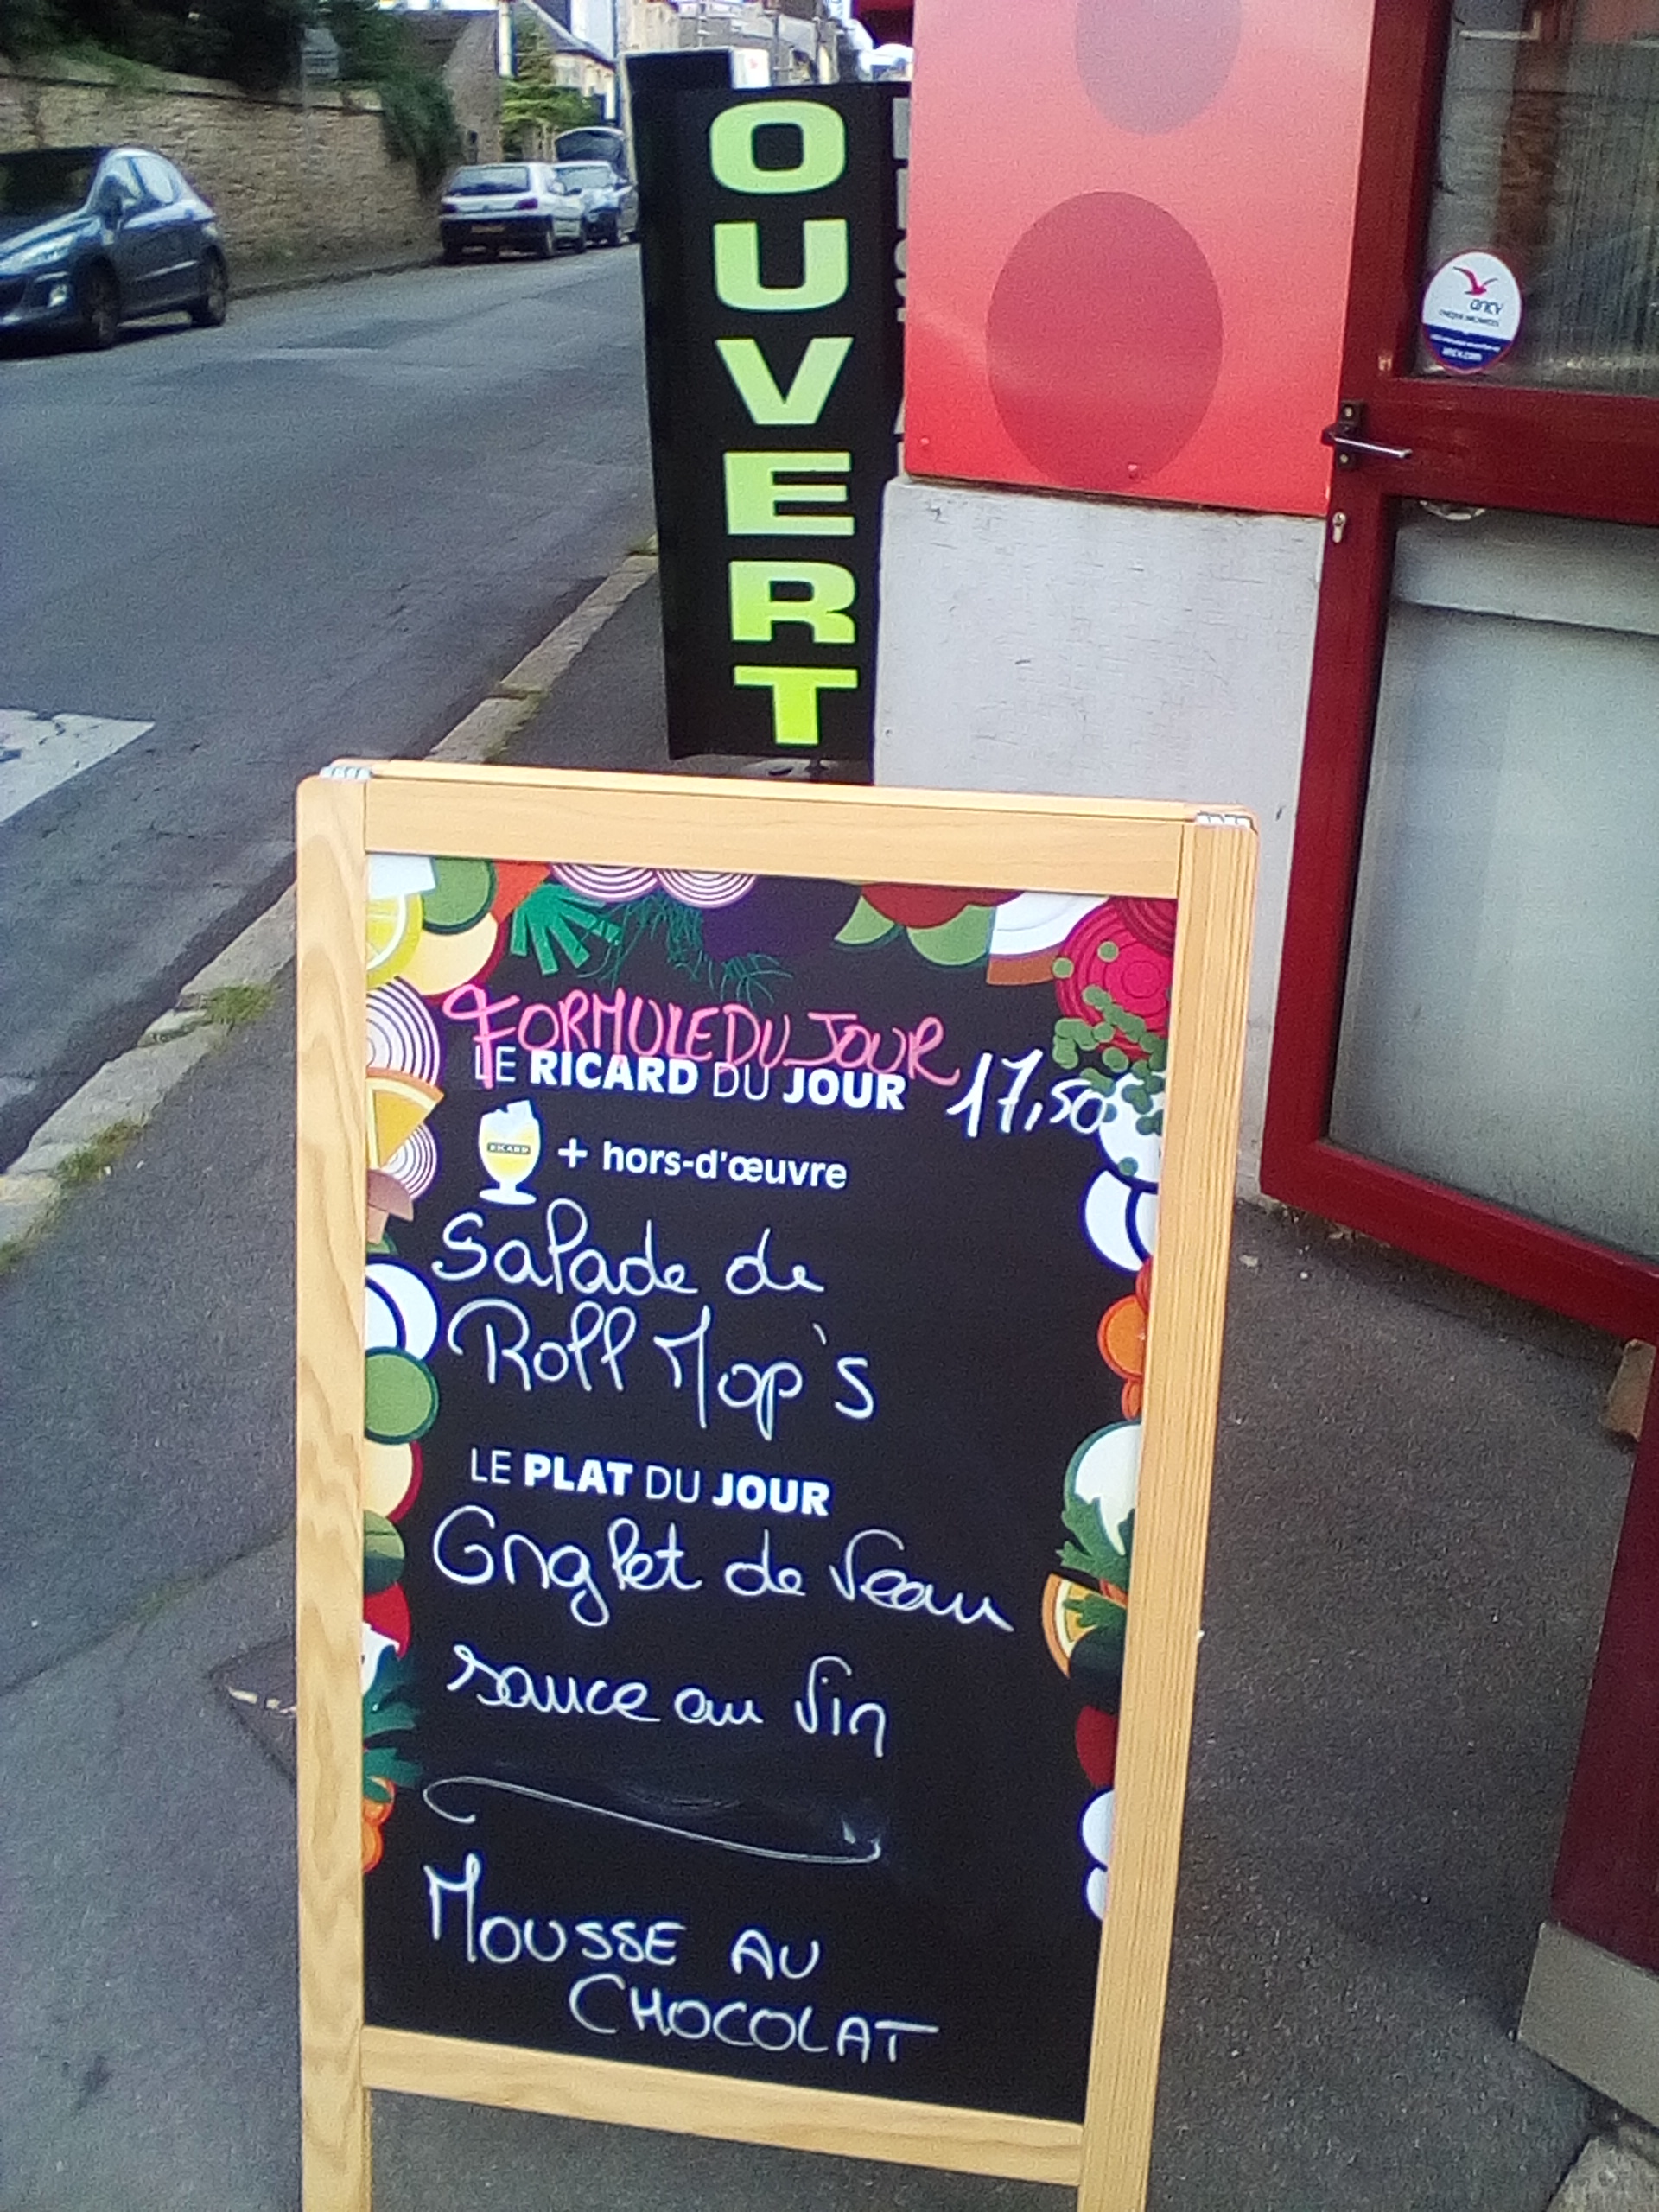 OUVERT
ancv
CHEQUE-VACANCES
ancv.com
FORMULE DU JOUR
LE RICARD DU JOUR
17,50
RICARD
+ hors-d'œuvre
Salade de
Roll Mop's
LE PLAT DU JOUR
Onglet de Veau
sauce au Vin
MOUSSE AU
CHOCOLAT